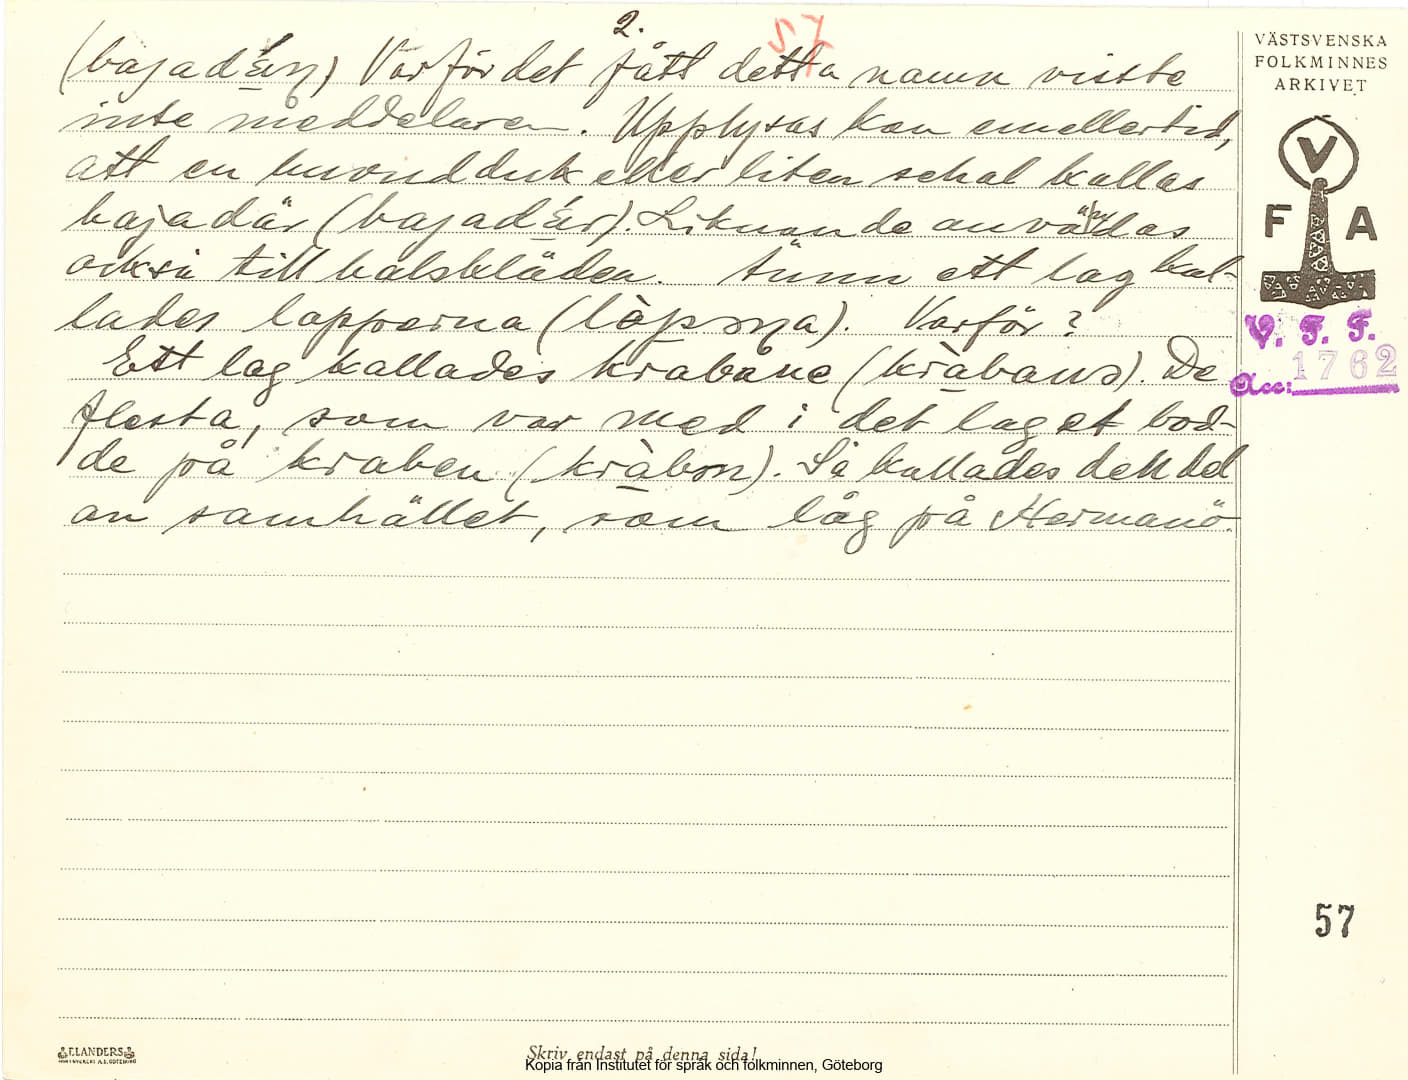 2.
57
(bajadǽŋ) Varför det fått detta namn visste
inte meddelaren. Upplysas kan emellertid,
att en huvudduk eller liten schal kallas
bajadär (bajadǽr). Liknande användas
också till halskläden. Ännu ett lag kal-
lades lapperna (làpɔŋa). Varför?
Ett lag kallades krabane (kràbanɔ). De
flesta, som var med i det laget bod-
de på kraben (kràbɔn). Så kallades den del
av samhället, som låg på Hermanö.
VÄSTSVENSKA
FOLKMINNES
ARKIVET
V
F A
V. F. F.
Acc: 1762
57
F. LANDERS
Skriv endast på denna sida!
Kopia från Institutet för språk och folkminnen, Göteborg